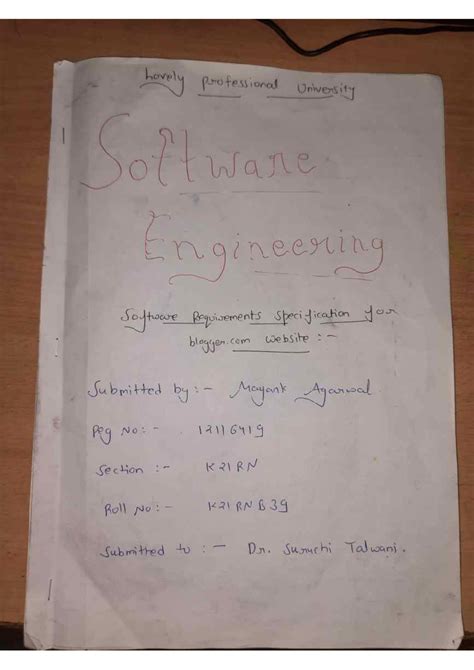 Lovely Professional University
Software
Engineering
Software Requirements Specification for
blogger.com website :-
Submitted by :- Mayank Agarwal
Reg No :- 12116419
Section :- K21RN
Roll No :- K21RNB39
Submitted to :- Dr. Suruchi Talwani.